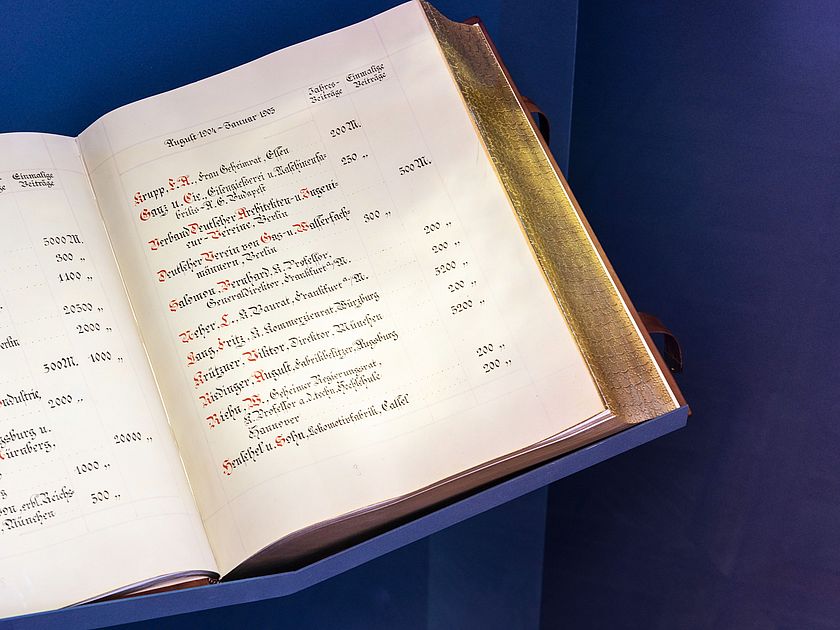 Einmalige
Beiträge
5000 M.
300 „
1100 „
20500 „
2000 „
erlin
500 M. 1000 „
ndustrie,
2000 „
gsburg u.
Nürnberg,
20000 „
1000 „
on, erbl. Reichs-
München
500 „
August 1904 – Januar 1905
Jahres-
Beiträge
Einmalige
Beiträge
Krupp, F. A., Frau Geheimrat, Essen 200 M.
Ganz u. Cie., Eisengiesserei u. Maschinenfa-
briks-A. G. Budapest 250 „
Verband Deutscher Architekten- u. Ingeni-
eur-Vereine, Berlin 500 M.
Deutscher Verein von Gas- u. Wasserfach-
männern, Berlin 300 „
Salomon, Bernhard, K. Professor,
Generaldirektor, Frankfurt a/M. 200 „
Neher, L., K. Baurat, Frankfurt a/M. 200 „
Lang, Fritz, K. Kommerzienrat, Würzburg 5200 „
Krützner, Viktor, Direktor, München 200 „
Riedinger, August, Fabrikbesitzer, Augsburg 5200 „
Riehn, W., Geheimer Regierungsrat,
K. Professor a. d. techn. Hochschule
Hannover 200 „
Henschel u. Sohn, Lokomotivfabrik, Cassel 200 „